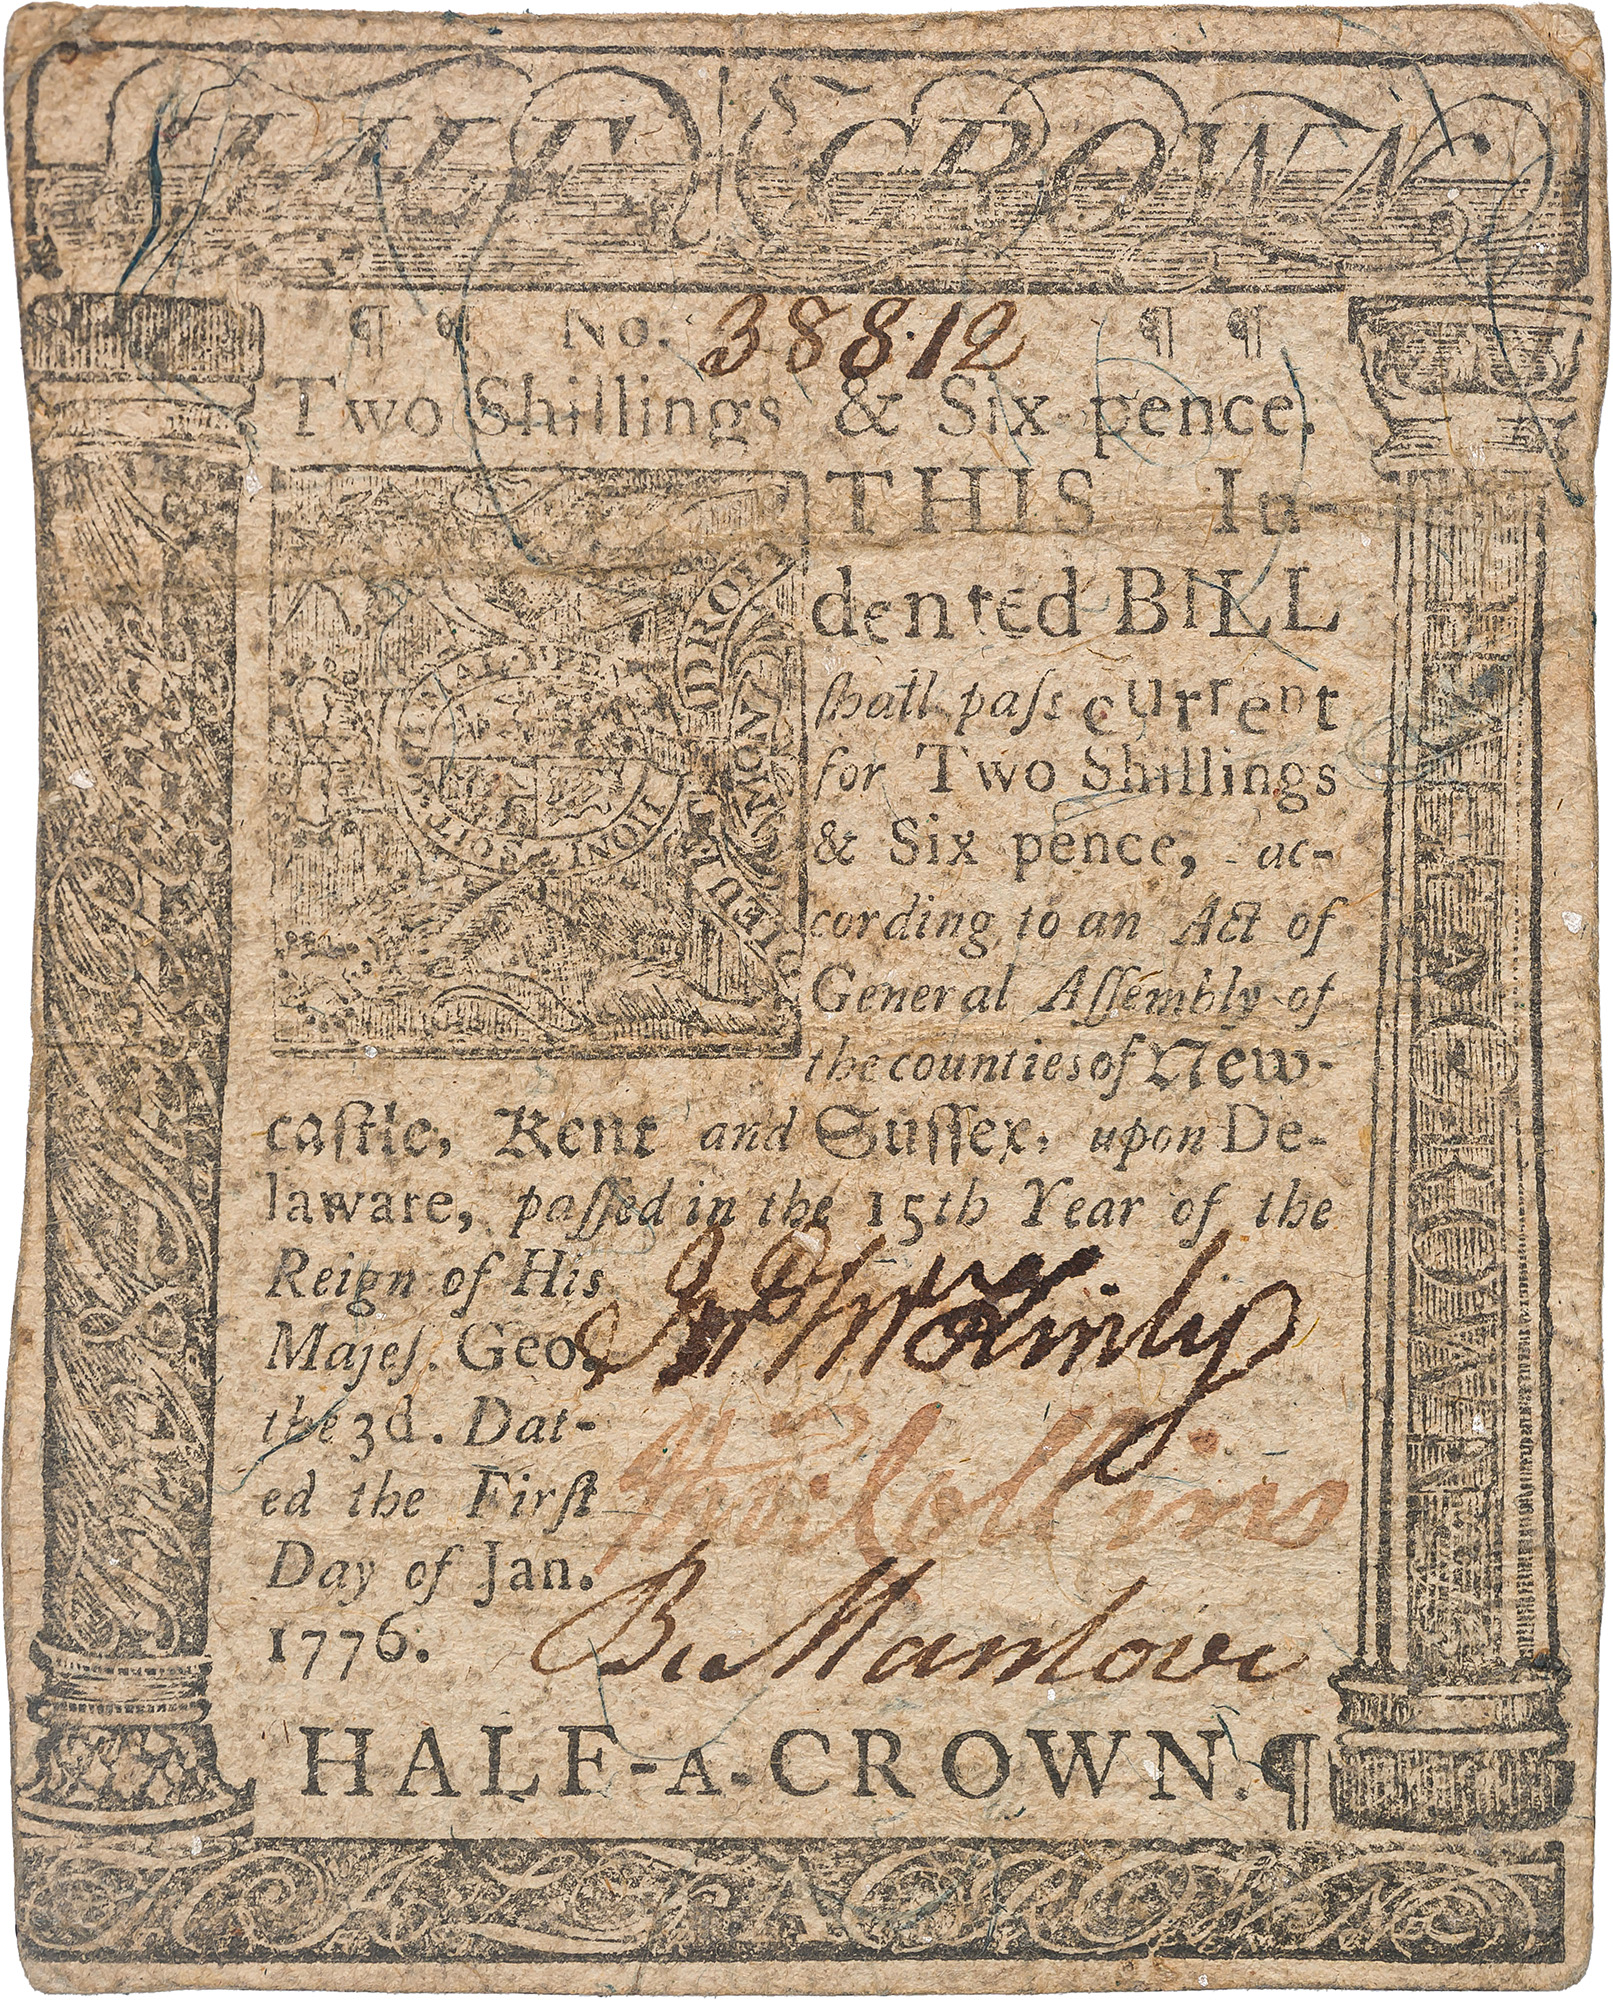 HALF CROWN
¶ ¶ No. 38812 ¶ ¶
Two Shillings & Six pence.
THIS In-
dented BILL
ſhall paſs current
for Two Shillings
& Six pence, ac-
cording to an Act of
General Aſſembly of
the counties of New-
caſtle, Kent and Suſſex, upon De-
laware, paſſed in the 15th Year of the
Reign of His
Majeſ. Geo.
the 3d. Dat-
ed the Firſt
Day of Jan.
1776.
DIEU ET MON DROIT
HONI SOIT QUI MAL Y PEN
McKinly
Thos. Collins
B. Manlove
HALF-A-CROWN.¶
HALF CROWN